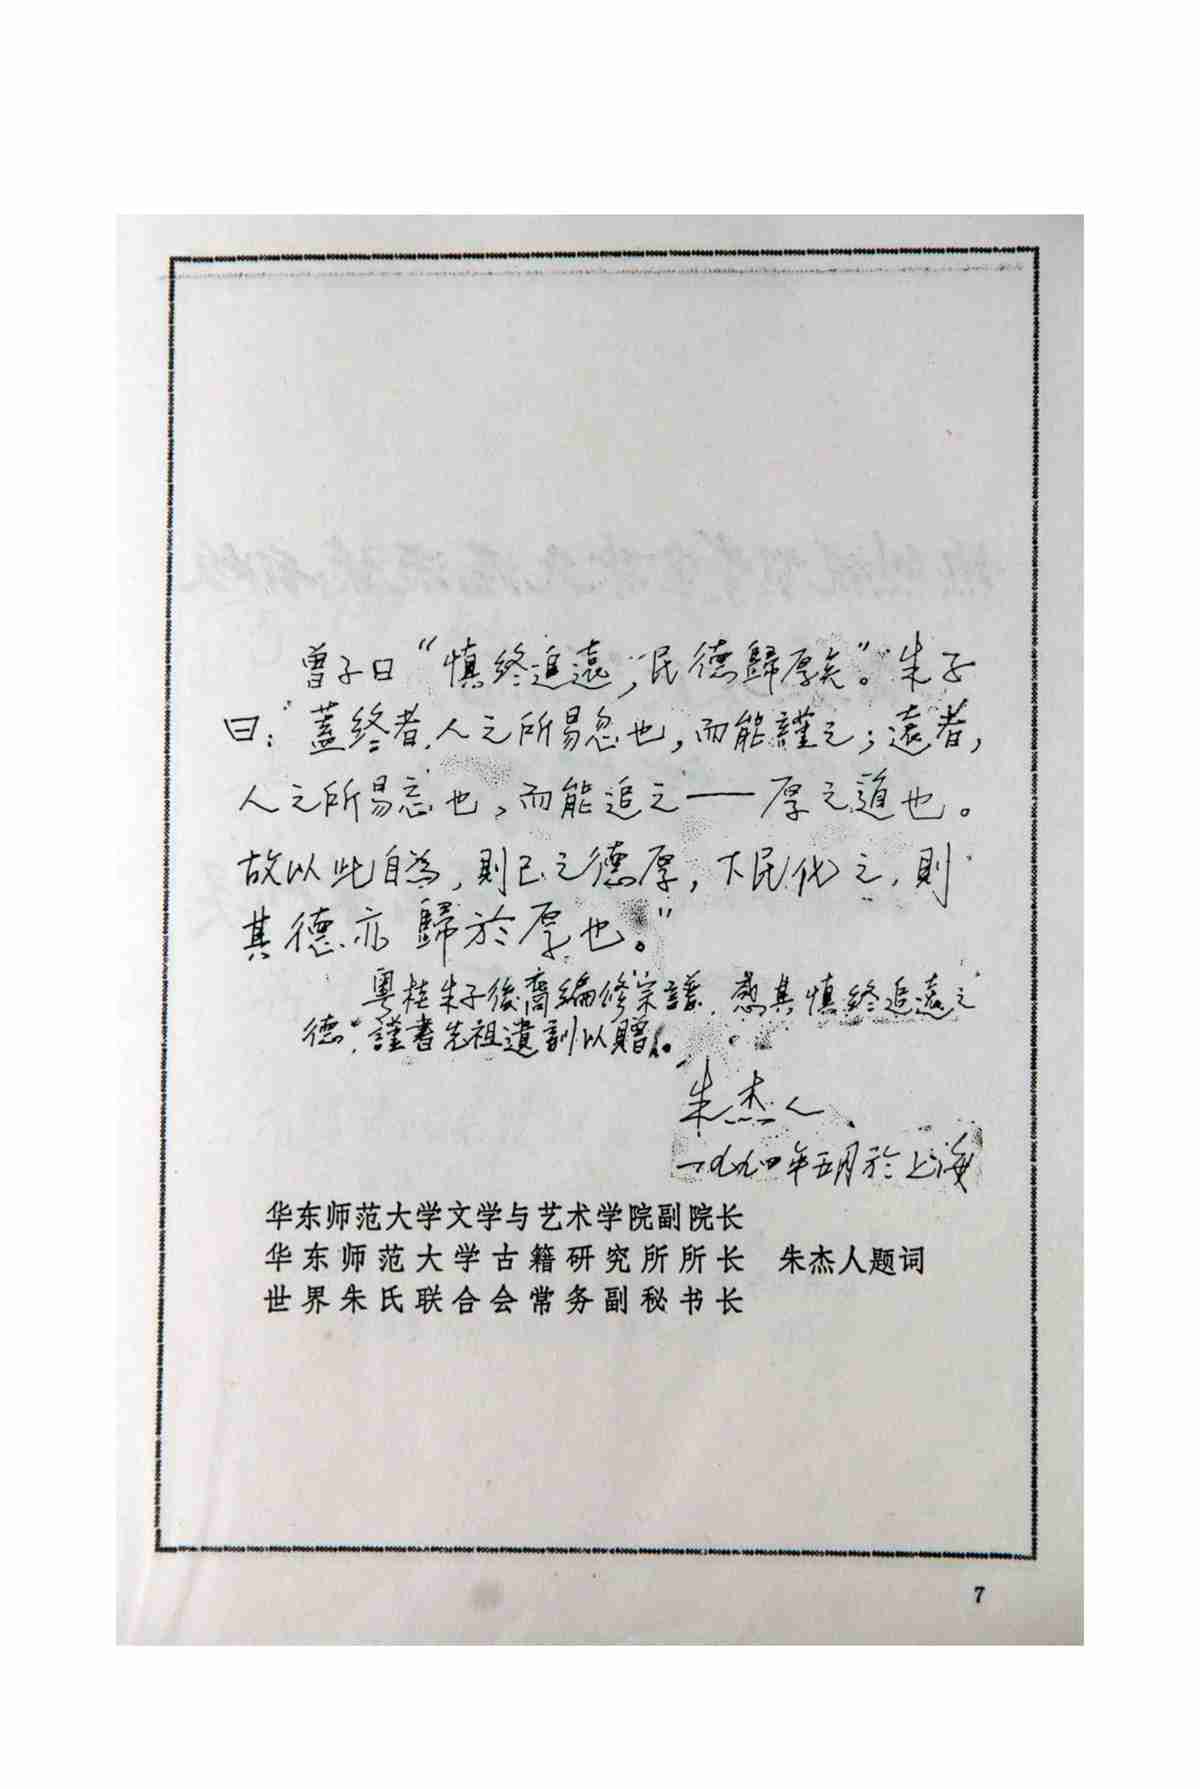 曾子曰“慎終追遠，民德歸厚矣”。朱子
曰：蓋終者，人之所易忽也，而能謹之；遠者，
人之所易忘也，而能追之——厚之道也。
故以此自為，則己之德厚，下民化之，則
其德亦歸於厚也。”
粵桂朱子後裔編修宗譜，感其慎終追遠之
德，謹書先祖遺訓以贈。
朱杰人
一九九四年五月於上海
华东师范大学文学与艺术学院副院长
华东师范大学古籍研究所所长 朱杰人题词
世界朱氏联合会常务副秘书长
7